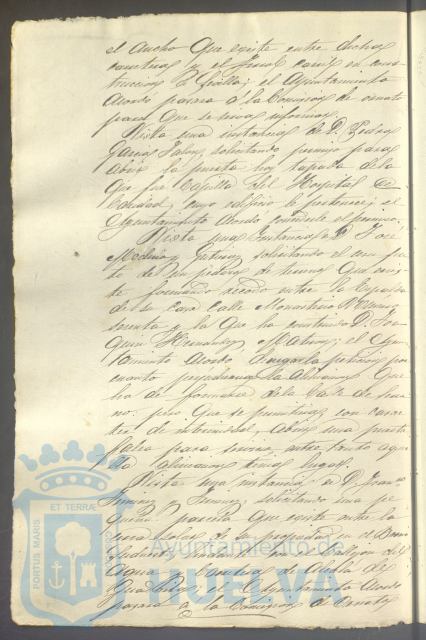 el ancho que existe entre dichas
carreteras y el ferro carril en cons-
truccion á Sevilla; el Ayuntamiento
acordó pasara á la Comision de ornato
para que se sirva informar.
Vista una instancia de D. Pedro
Garcia Jalon, solicitando permiso para
abrir la puerta hoy tapada de la
que fué Capilla del Hospital de
Caridad, cuyo edificio le pertenece; el
Ayuntamiento acordó concederle el permiso.
Vista una instancia de D. José
Medina y solicitando el
te de un pedazo de terreno que exis-
te formando recodo entre la espalda
de su casa calle Monasterio
y la que ha construido D. Joa-
quin Hernandez el Ayun-
tamiento acordó denegarla peticion por
cuanto perjudicaria la alineacion que
ha de formarse de la calle
pero que se permitiera con carac-
ter de interinidad, abrir una puerta
falsa para servicio entre tanto aque-
lla alineacion tenia lugar.
Vista una instancia de D. Fran.co
Jimenez y Jimenez, solicitando una pe-
queña parcela que existe entre la
de su propiedad en el
del
Agua y carretera de Alcalá de
Guadaira, el Ayuntamiento acordó
pasara á la Comision de Ornato
PORTUS MARIS
ET TERRAE
Ayuntamiento de
HUELVA